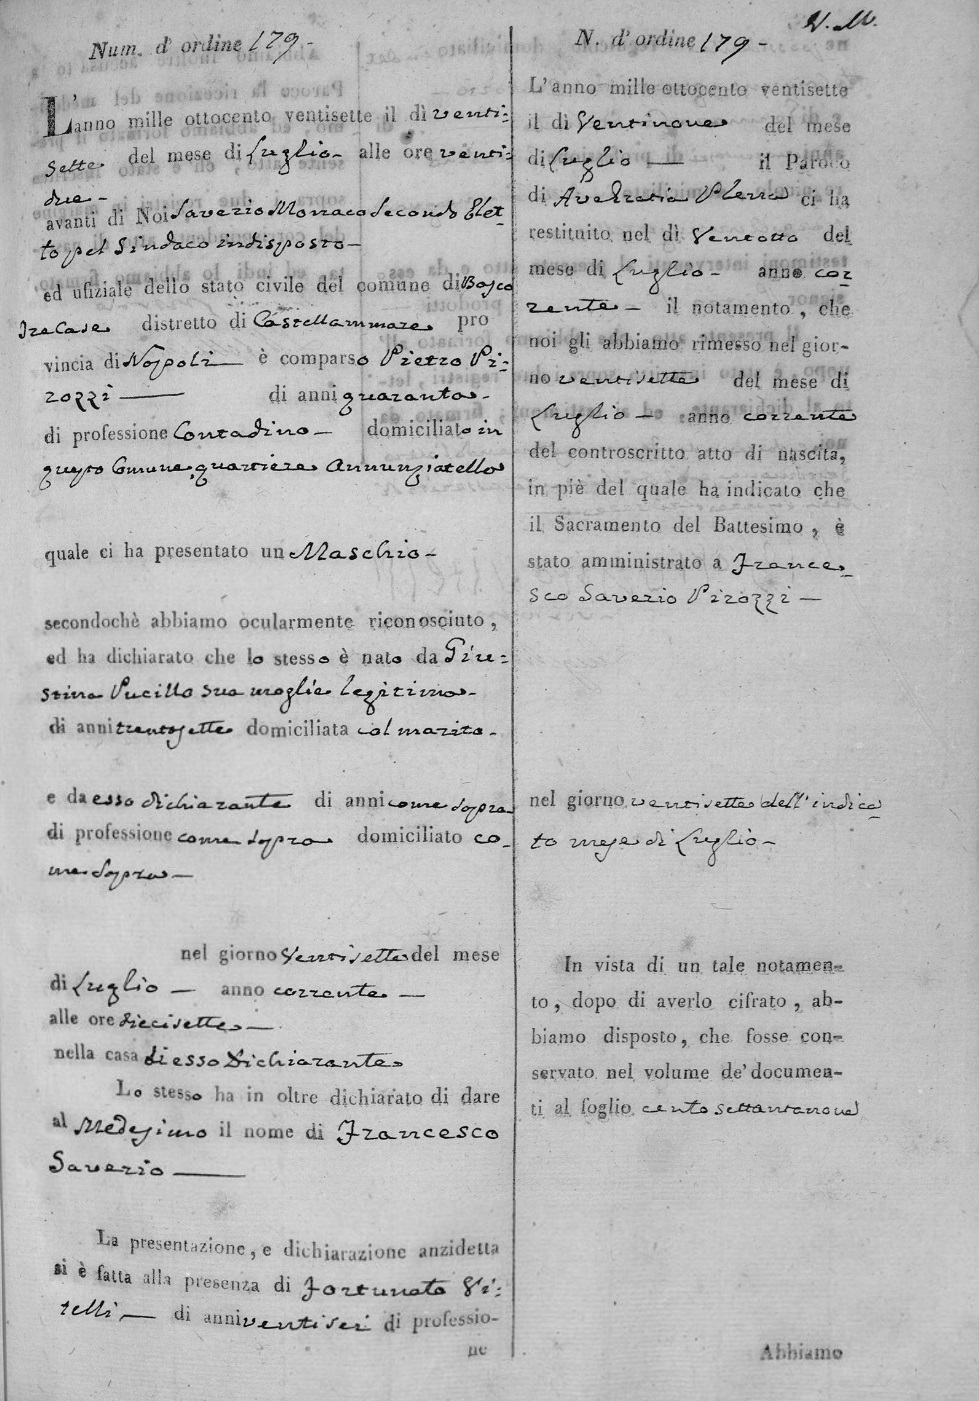 Num. d' ordine 179-
L'anno mille ottocento ventisette il dì venti-
sette del mese di Luglio- alle ore venti-
due-
avanti di Noi Saverio Monaco Secondo Elet
to pel Sindaco indisposto-
ed ufiziale dello stato civile del comune di Bosco
Tre Case distretto di Castellammare pro
vincia di Napoli- è comparso Pietro Pi-
rozzi- di anni quaranta-
di professione Contadino- domiciliato in
questo Comune, quartiere Annunziatella
quale ci ha presentato un Maschio-
secondochè abbiamo ocularmente riconosciuto,
ed ha dichiarato che lo stesso è nato da Giu-
stina Pucillo sua moglie legitima-
di anni trentasette domiciliata col marito-
e da esso dichiarante di anni come sopra
di professione come sopra domiciliato co-
me sopra-
nel giorno Ventisette del mese
di Luglio- anno corrente-
alle ore diecisette-
nella casa di esso Dichiarante
Lo stesso ha in oltre dichiarato di dare
al Medesimo il nome di Francesco
Saverio-
La presentazione, e dichiarazione anzidetta
si è fatta alla presenza di Fortunato Vi-
telli- di anni ventisei di professio-
ne
N. d' ordine 179-
L'anno mille ottocento ventisette
il dì Ventinove del mese
di Luglio- il Paroco
di ci ha
restituito nel dì Ventotto del
mese di Luglio- anno cor
rente- il notamento, che
noi gli abbiamo rimesso nel gior-
no ventisette del mese di
Luglio- anno corrente
del controscritto atto di nascita,
in piè del quale ha indicato che
il Sacramento del Battesimo, è
stato amministrato a France-
sco Saverio Pirozzi-
nel giorno ventisette dell'indica
to mese di Luglio-
In vista di un tale notamen-
to, dopo di averlo cifrato, ab-
biamo disposto, che fosse con-
servato nel volume de' documen-
ti al foglio cento settantanove
Abbiamo